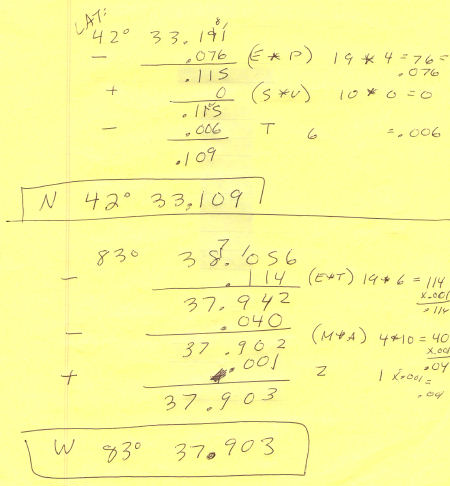 LAT:
42° 33.191
- .076 (E * P) 19 * 4 = 76 = .076
.115
+ 0 (S*U) 10 * 0 = 0
.115
- .006 T 6 = .006
.109
N 42° 33.109
83° 38.056
- .114 (E*T) 19 * 6 = 114
x.001
.114
37.942
- .040 (M*A) 4*10 = 40
37.902
.04
+ .001 Z 1 x.001 =
37.903
W 83° 37.903